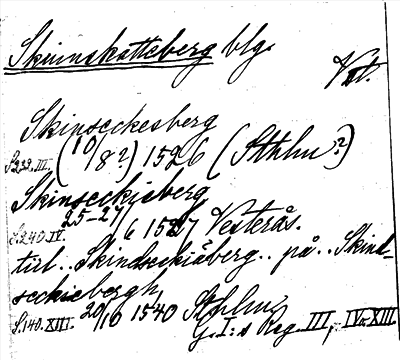 Skinnskatteberg blgs
Vstl.
Skinseckesberg
S.233.III. (10/8?) 1526 (Sthlm?)
Skinseckieberg
S.240.IV. 25-27/6 1527 Vesterås.
till.. Skindseckiäberg.. på.. Skind-
seckiebergh
S.140.XIII. 20/10 1540 Sthlm.
G.I:s Reg. III, IV, XIII.